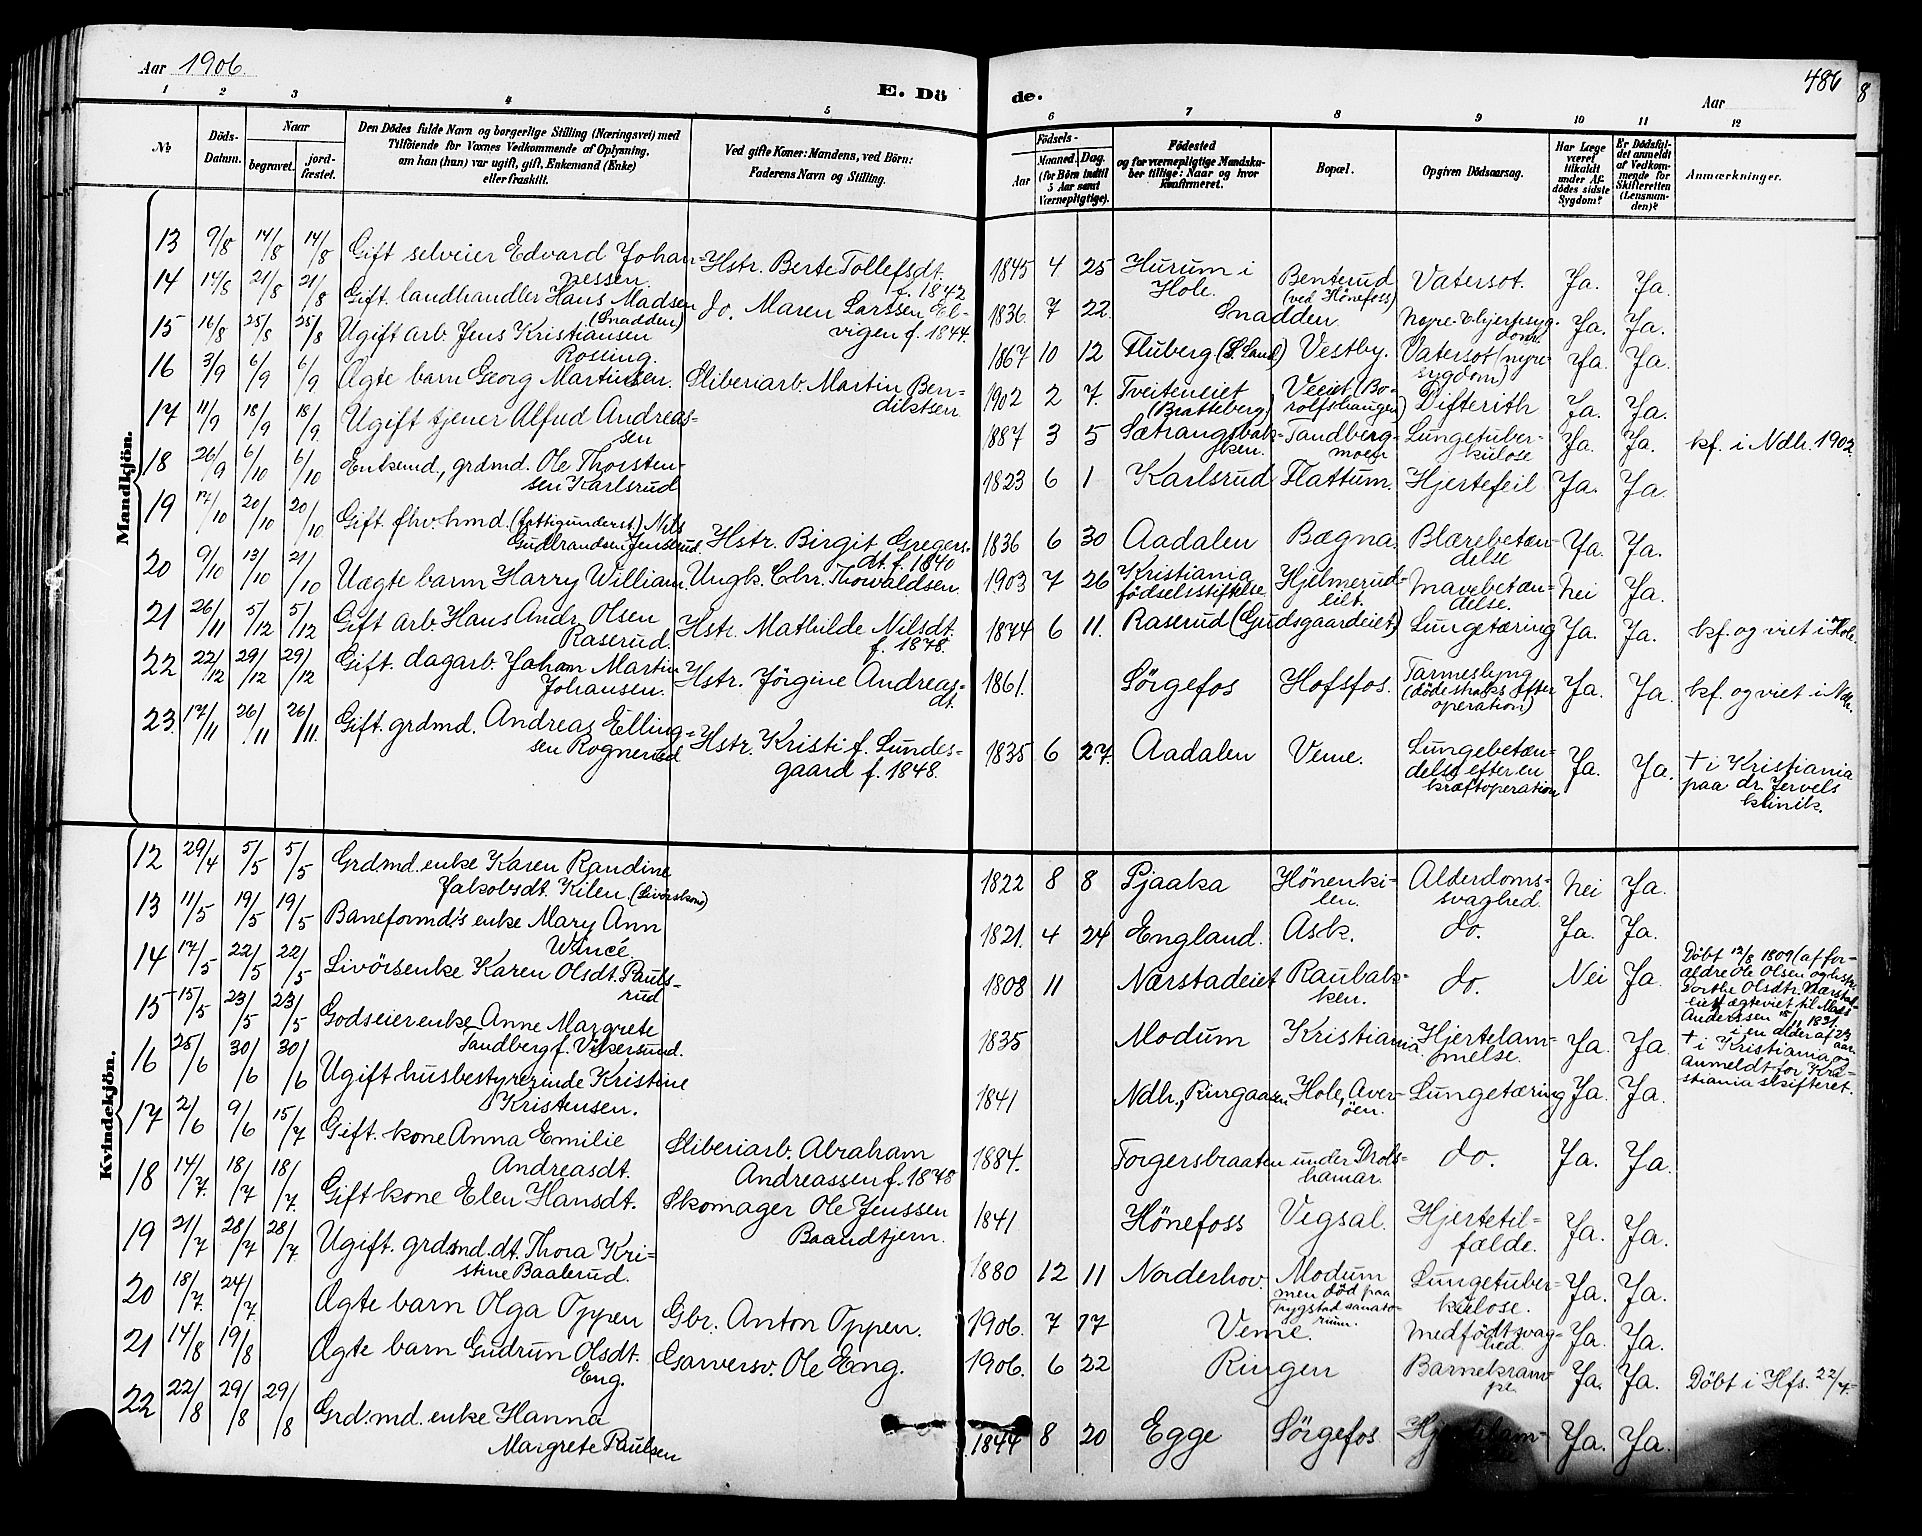 Aar 1906.
E. Döde.
Aar
486
8
1 2 3 4 5 6 7 8 9 10 11 12
№
Döds-Datum.
Naar
begravet.
jord-fæstet.
Den Dödes fulde Navn og borgerlige Stilling (Næringsvei) med
Tilföiende for Voxnes Vedkommende af Oplysning,
om han (hun) var ugift, gift, Enkemand (Enke)
eller fraskilt.
Ved gifte Koner: Mandens, ved Börn:
Faderens Navn og Stilling.
Födsels-
Aar
Maaned. Dag.
(for Börn indtil
5 Aar samt
Værnepligtige).
Födested
og for værnepligtige Mandska-
ber tillige: Naar og hvor
konfirmeret.
Bopæl.
Opgiven Dödsaarsag.
Har Læge
været
tilkaldt
under Af-
dödes sidste
Sygdom?
Er Dödsfal-
det anmeldt
af Vedkom-
mende for
Skifteretten
(Lensman-
den)?
Anmærkninger.
Mandkjön.
13 9/8 14/8 14/8 Gift selveier Edvard Johan-
nessen. Hstr. Berte Tollefsdt.
f. 1842 1845 4 25 Hurum i
Hole. Benterud
(ved Hönefoss) Vatersot. Ja. Ja.
14 14/8 21/8 21/8 Gift. landhandler Hans Madsen
(Snadden) Do. Maren Larssen El-
vigen f. 1844. 1836. 7 22. Snadden Nyre- & hjertesyg-
dom. Ja. Ja.
15 16/8 25/8 25/8 Ugift arb. Jens Kristiansen
Rossing. 1867 10 12 Fluberg (S. Land) Vestby. Vatersot (nyre
sygdom) Ja. Ja.
16 3/9 6/9 6/9 Ægte barn Georg Martinsen. Sliberiarb. Martin Ben-
diktsen 1902 2 7. Tveiteneiet
(Bratteberg) Veeiet (Bo-
rolfshaugen) Difterith Ja. Ja.
17 11/9 18/9 18/9 Ugift tjener Alfud Andreas-
sen 1887 3 5 Sætrangsbak-
ken. Tandberg-
moen Lungetuber-
kulose Ja. Ja. kf. i Ndh. 1902
18 26/9 6/10 6/10 Enkemd., grdmd. Ole Thorsten-
sen Karlsrud 1823 6 1 Karlsrud Flattum. Hjertefeil Ja. Ja.
19 17/10 20/10 20/10 Gift. fhv. hmd. (fattigunderst.) Nils
Gudbrandsen Jenserud. Hstr. Birgit Gregers-
dt. f. 1840 1836 6 30 Aadalen Bægna Blærebetæn-
delse Ja. Ja.
20 9/10 13/10 21/10 Uægte barn Harry William. Ungk. Chr. Thorvaldsen. 1903 7 26 Kristiania
födselsstiftelse Hjelmerud-
eiet. Mavebetæn-
delse. Nei Ja.
21 26/11 5/12 5/12 Gift arb. Hans Andr. Olsen
Raserud. Hstr. Mathilde Nilsdt.
f. 1878. 1874 6 11. Raserud (Gudsgaardeiet) Lungetæring Ja. Ja. kf. og viet i Hole.
22 22/12 29/12 29/12 Gift. dagarb. Johan Martin
Johansen. Hstr. Jörgine Andreas-
dt. 1861. Sörgefos Hofsfos. Tarmeslyng
(döde straks efter
operation) Ja. Ja. kf. og viet i Ndh.
23 17/11 26/11 26/11. Gift. grdmd. Andreas Elling-
sen Rognerud Hstr. Kristi f. Lundes-
gaard f. 1848. 1835 6 27. Aadalen Veme. Lungebetæn-
delse efter en
kræftoperation Ja. Ja. † i Kristiania
paa dr. Jervels
klinik.
Kvindekjön.
12 29/4 5/5 5/5 Grdmd. enke Karen Randine
Jakobsdt. Kilen. (Livörskone) 1822 8 8 Pjaaka Hönenki-
len. Alderdoms-
svaghed. Nei Ja.
13 11/5 19/5 19/5 Baneformd.'s enke Mary Ann
Wince 1821. 4 24 England. Ask. do. Ja. Ja.
14 17/5 22/5 22/5 Livörsenke Karen Olsdt. Pauls-
rud 1808 11 Nærstadeiet Raubak-
ken. do. Nei Ja. Döbt 13/8 1809 (af for-
ældre Ole Olsen og hstr.
Dorthe Olsdtr. Nærstad-
eiet) ægteviet til Mads
Anderssen 15/11 1831.
i en alder af 23
aar.
15 15/5 23/5 23/5 Godseierenke Anne Margrete
Tandberg f. Vikersund. 1835 Modum Kristiania. Hjertelam-
melse. Ja. Ja. † i Kristiania og
anmeldt for Kri-
stiania skifteret.
16 25/6 30/6 30/6 Ugift husbestyrerinde Kristine
Kristensen. 1841 Ndh., Ringaasen Hole, Aver-
öen. Lungetæring Ja. Ja.
17 2/6 9/6 15/7 Gift. kone Anna Emilie
Andreasdt. Sliberiarb. Abraham
Andreassen f. 1848 1884. Torgersbraaten under Drols-
hamar. do. Ja. Ja.
18 14/7. 18/7 18/7. Gift kone Elen Hansdt. Skomager Ole Jenssen
Baandtjern. 1841. Hönefoss Vegsal. Hjertetil-
fælde. Ja. Ja.
19 21/7 28/7 28/7. Ugift. grdmd. dt. Thora Kri-
stine Baalerud. 1880 12 11 Norderhov. Modum
men död paa
Trygstad sanato-
rium. Lungetuber-
kulose. Ja. Ja.
20 18/7. 24/7. Ægte barn Olga Oppen Gbr. Anton Oppen. 1906. 7 17 Veme. Medfödt svag-
hed. Ja. Ja.
21 14/8 19/8 Ægte barn Gudrun Olsdt.
Eng. Garversv. Ole Eng. 1906. 6 22 Ringen Barnekram-
pe. Ja. Ja. Döbt i Hfs. 22/7.
22 22/8 29/8 29/8 Grd.md. enke Hanna
Margrete Paulsen 1844 8 20 Egge Sörgefos Hjertelam- Ja. Ja.